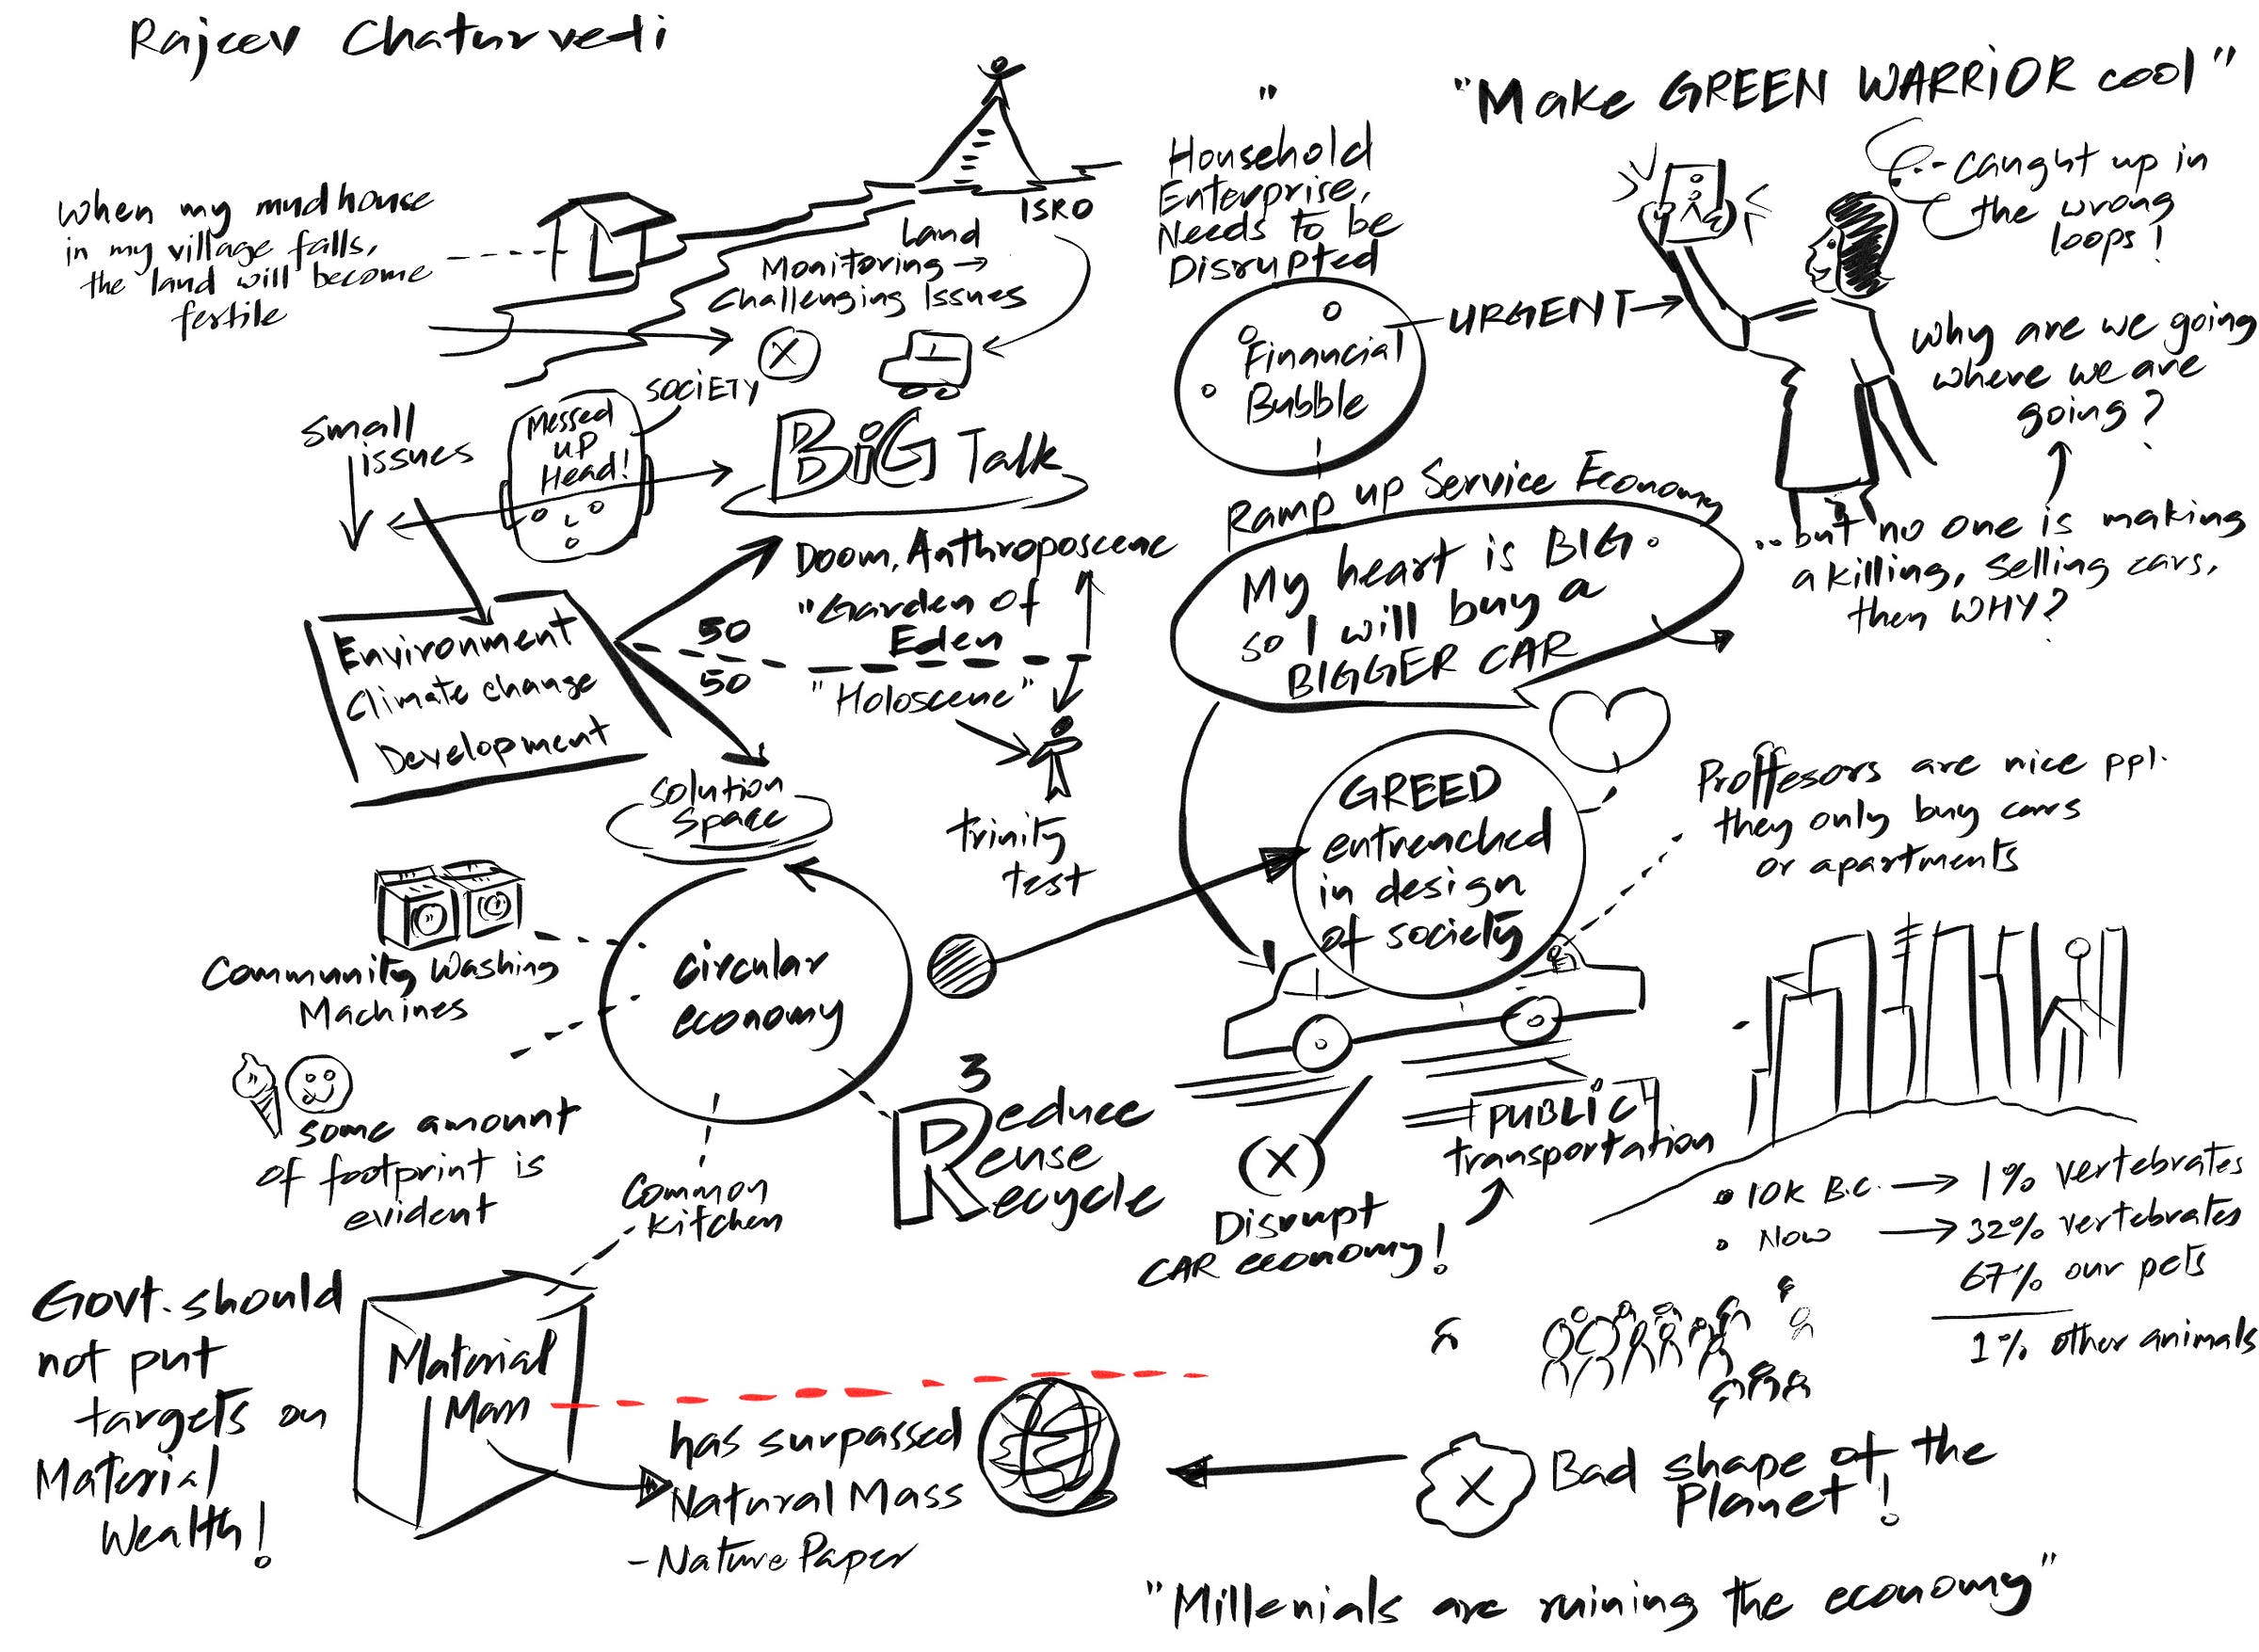 Rajeev Chaturvedi
"Make GREEN WARRIOR cool"
When my mudhouse
in my village falls,
the land will become
fertile
ISRO
Land
Monitoring →
Challenging Issues
"
Household
Enterprise,
Needs to be
Disrupted
Financial
Bubble
URGENT
- caught up in
the wrong
loops!
why are we going
where we are
going?
..but no one is making
a killing, selling cars,
then WHY?
small
issues
Messed
up
Head!
SOCIETY
X
BiG Talk
Ramp up Service Economy
My heart is BIG.
so I will buy a
BIGGER CAR
Environment
Climate change
Development
50
50
Doom, Anthroposcene
"Garden of
Eden
"Holoscene"
trinity
test
solution
space
circular
economy
Community Washing
Machines
some amount
of footprint is
evident
Common
Kitchen
3
Reduce
Reuse
Recycle
GREED
entrenched
in design
of society
Proffesors are nice ppl.
they only buy cars
or apartments
PUBLIC
transportation
(X)
Disrupt
CAR economy!
• 10K B.C. → 1% vertebrates
• Now → 32% vertebrates
67% our pets
1% other animals
Govt. should
not put
targets on
Material
Wealth!
Material
Mass
has surpassed
Natural Mass
- Nature Paper
X
Bad shape of the
Planet!
"Millenials are ruining the economy"